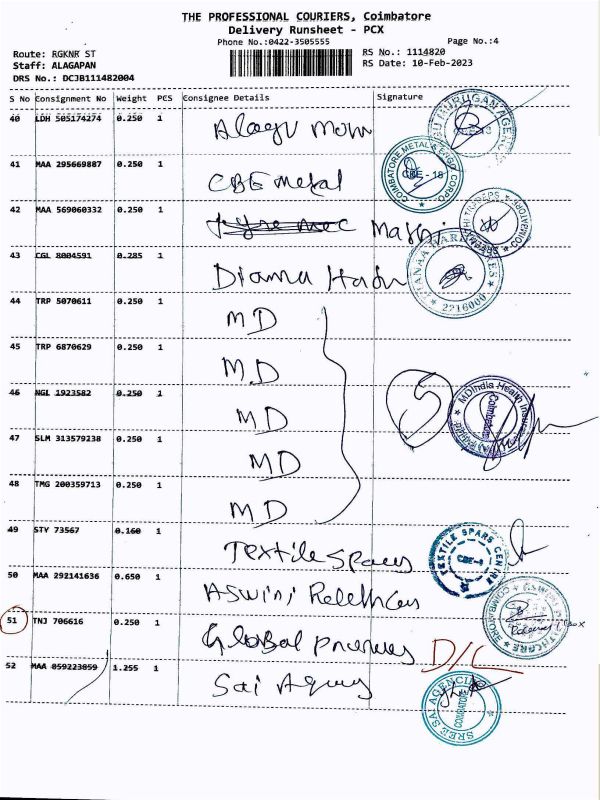 THE PROFESSIONAL COURIERS, Coimbatore
Delivery Runsheet - PCX
Phone No.:0422-3505555
Page No.:4
Route: RGKNR ST
RS No.: 1114820
Staff: ALAGAPAN
RS Date: 10-Feb-2023
DRS No.: DCJB111482004
S No Consignment No Weight PCS Consignee Details Signature
40 LDH 505174274 0.250 1 Alagu
41 MAA 295669887 0.250 1 CBE metal
COIMBATORE METAL CBE - 18
42 MAA 569060332 0.250 1
43 CGL 8004591 0.285 1 Diama
2216000
44 TRP 5070611 0.250 1 MD
45 TRP 6870629 0.250 1 MD
46 NGL 1923582 0.250 1 MD
MDIndia Health Coimbatore
47 SLM 313579238 0.250 1 MD
48 TMG 200359713 0.250 1 MD
49 STY 73567 0.160 1 Textile Spares
TEXTILE SPARS CENTRE
50 MAA 292141636 0.650 1 Aswini
51 TNJ 706616 0.250 1 Global D/L
52 MAA 859223859 1.255 1 Sai
SREE SAI AGENCIES COIMBATORE